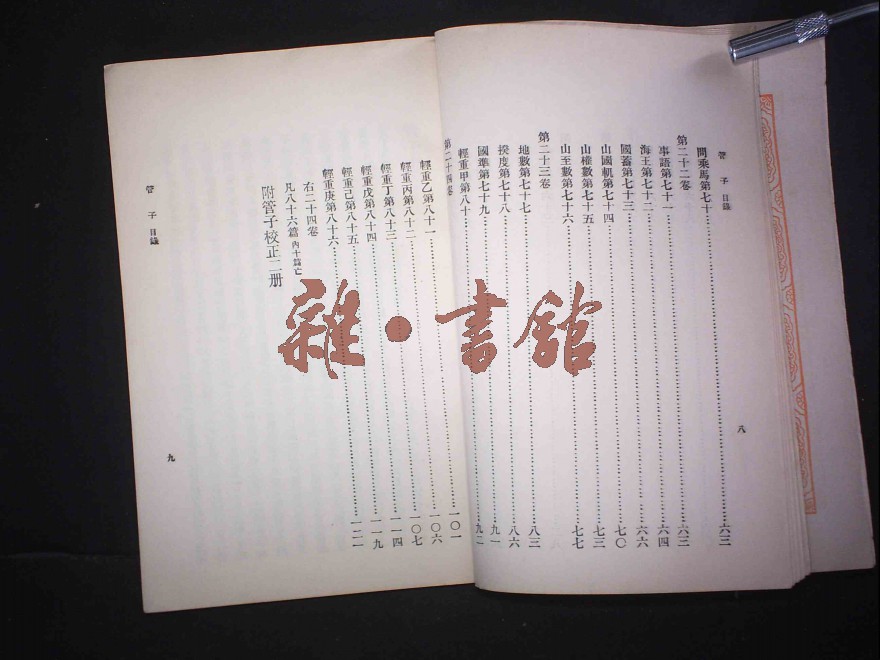 管子 目錄
問乘馬第七十……六三
第二十二卷
事語第七十一……六三
海王第七十二……六四
國蓄第七十三……六六
山國軌第七十四……七〇
山權數第七十五……七三
山至數第七十六……七七
第二十三卷
地數第七十七……八三
揆度第七十八……八六
國準第七十九……九一
輕重甲第八十……九二
八
第二十四卷
輕重乙第八十一……一〇一
輕重丙第八十二……一〇六
輕重丁第八十三……一〇七
輕重戊第八十四……一一四
輕重己第八十五……一一九
輕重庚第八十六……一二一
右二十四卷
凡八十六篇內十篇亡
附管子校正二册
管子 目錄
九
雜·書館